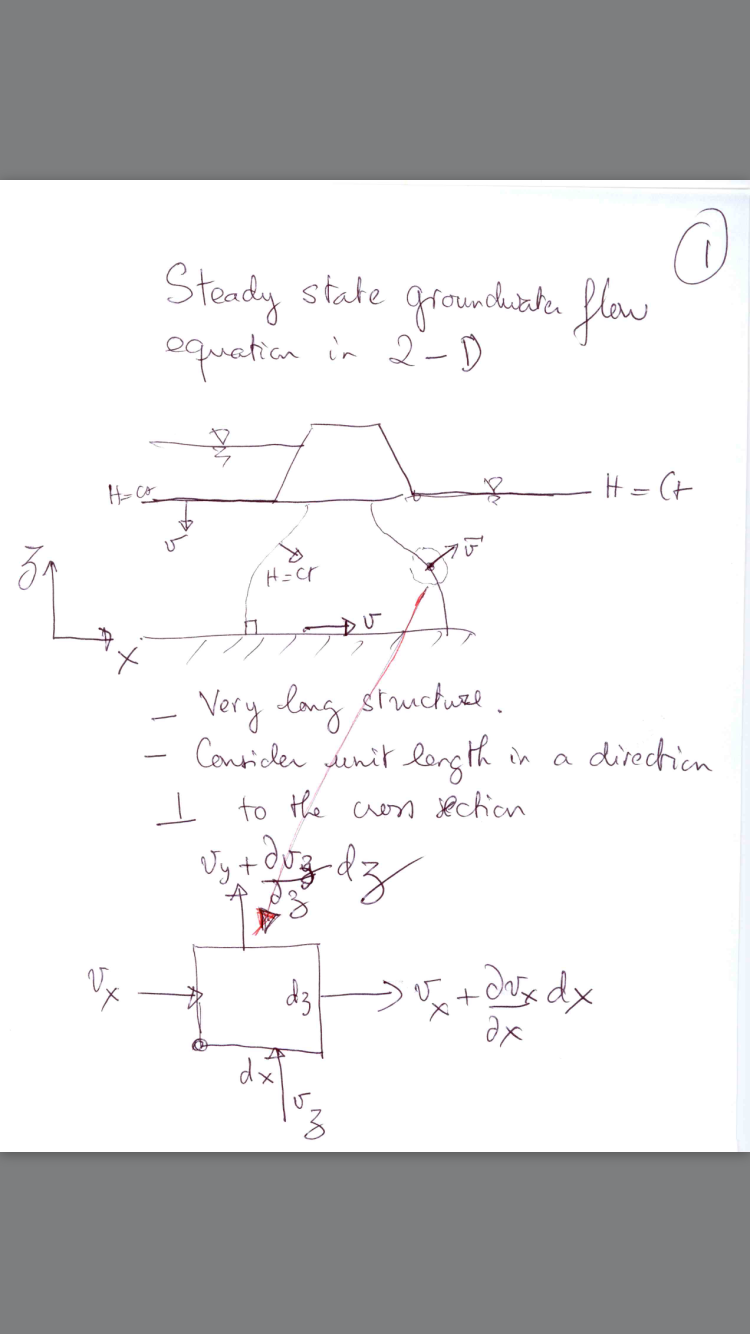 1
Steady state groundwater flow
equation in 2-D
H=Ct
H = Ct
v
v̄
H=Ct
z
v
x
- Very long structure.
- Consider unit length in a direction
⊥ to the cross section
vy + ∂vz/∂z dz
vx
dz
vx + ∂vx/∂x dx
dx
vz